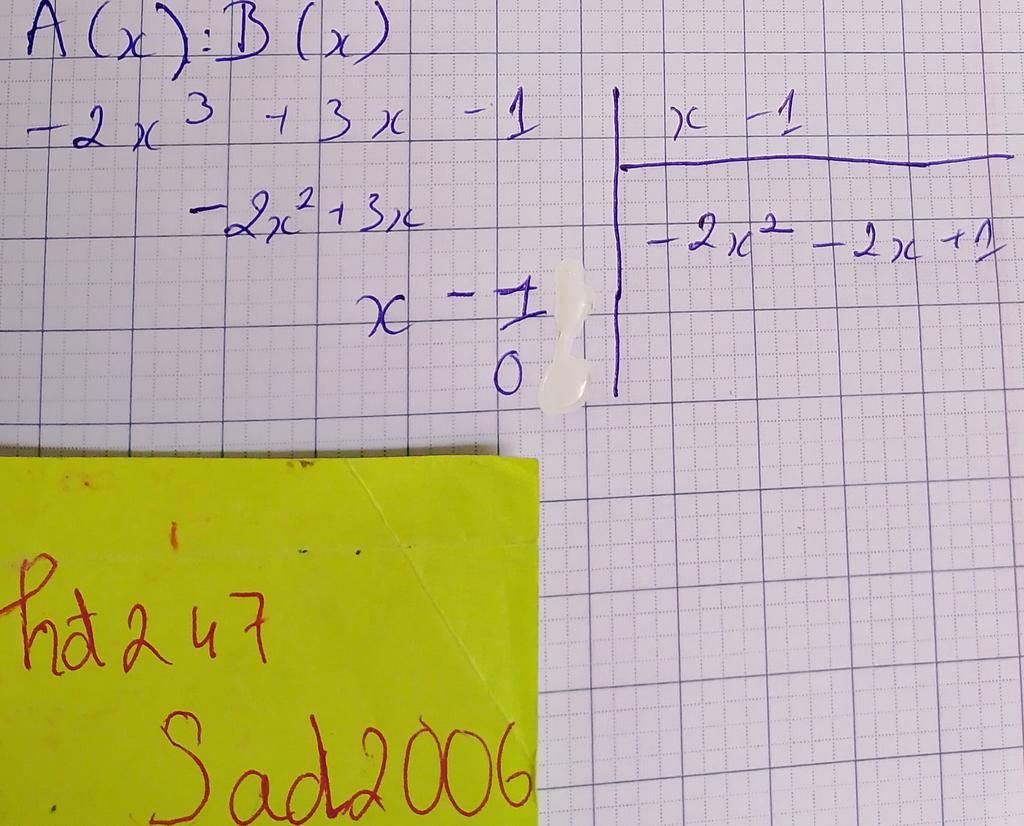 A(x):B(x)
-2x³ + 3x - 1
x - 1
-2x² + 3x
-2x² - 2x + 1
x - 1
0
hd247
Sad2006